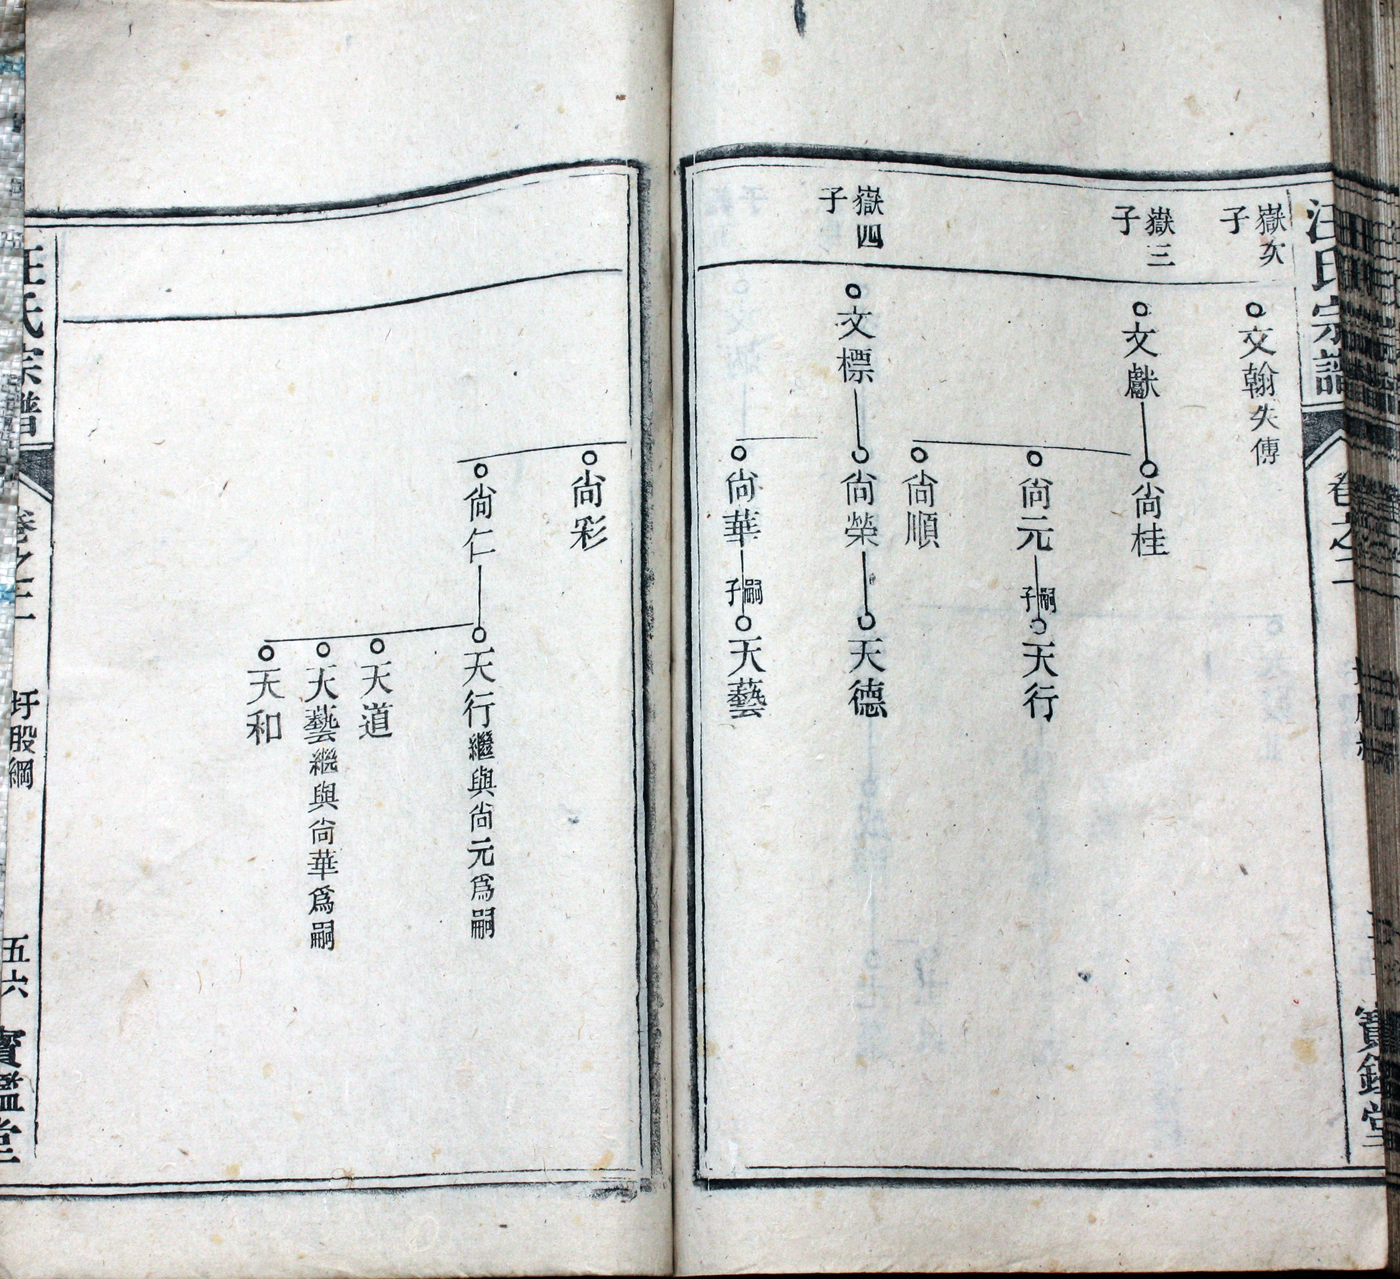 汪氏宗譜
卷之二
寶鑑堂
嶽次子
文翰失傳
嶽三子
文獻
尚桂
尚元
嗣子
天行
尚順
嶽四子
文標
尚榮
天德
尚華
嗣子
天藝
尚彩
尚仁
天行繼與尚元爲嗣
天道
天藝繼與尚華爲嗣
天和
汪氏宗譜
卷之二
圩股綱
五六
寶鑑堂